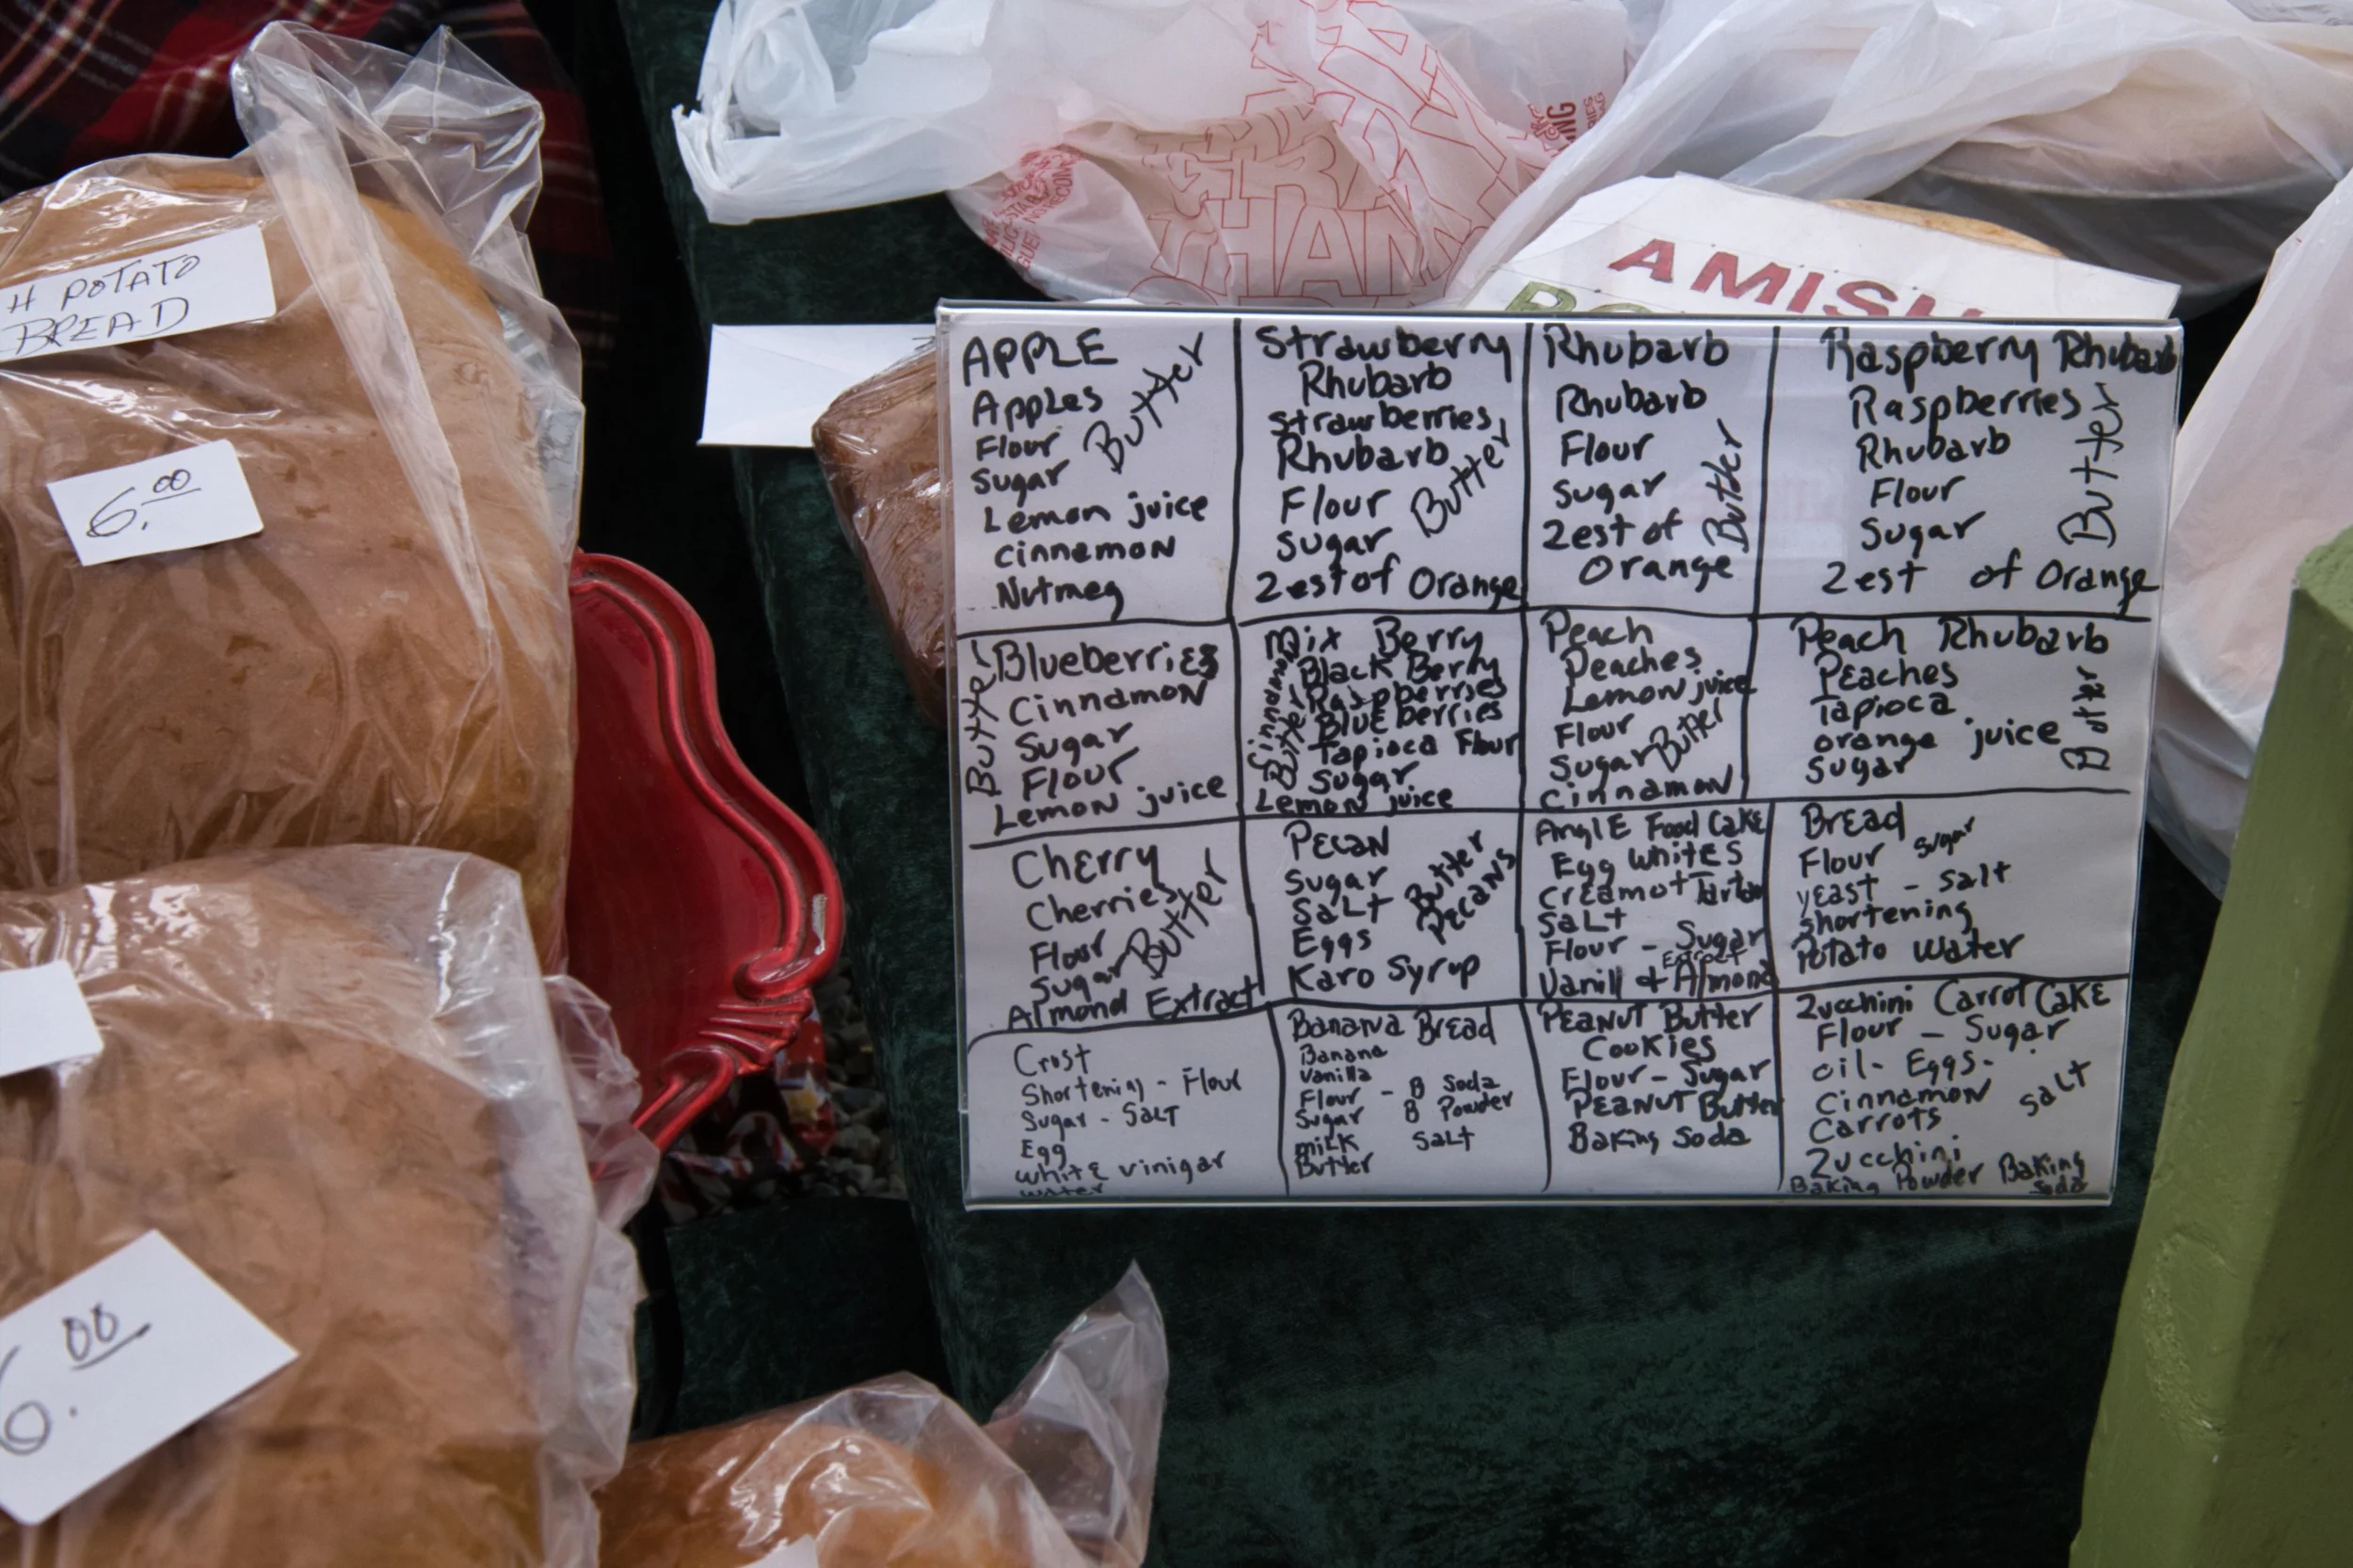 H POTATO
BREAD
6.00
6.00
AMISH
APPLE
Apples
Butter
Flour
Sugar
Lemon juice
cinnamon
Nutmeg
Strawberry
Rhubarb
Strawberries
Rhubarb
Butter
Flour
Sugar
Zest of Orange
Rhubarb
Rhubarb
Flour
Sugar
Butter
Zest of
Orange
Raspberry Rhubarb
Raspberries
Rhubarb
Butter
Flour
Sugar
Zest of Orange
Blueberries
Butter
Cinnamon
Sugar
Flour
Lemon juice
Mix Berry
Black Berry
Raspberries
Blueberries
Cinnamon
Butter
Tapioca Flour
Sugar
Lemon juice
Peach
Peaches
Lemon juice
Flour
Sugar Butter
Cinnamon
Peach Rhubarb
Peaches
Tapioca
orange juice
Sugar
Butter
Cherry
Cherries
Flour
Sugar
Butter
Almond Extract
Pecan
Sugar
Salt
Butter
Pecans
Eggs
Karo Syrup
Angle Food Cake
Egg Whites
Cream of Tartar
Salt
Flour - Sugar
Extract
Vanill & Almond
Bread
Flour Sugar
yeast - Salt
shortening
Potato Water
Crost
Shortening - Flour
Sugar - Salt
Egg
White vinigar
water
Banana Bread
Banana
Vanilla
Flour - B Soda
Sugar B Powder
milk Salt
Butter
Peanut Butter
Cookies
Flour - Sugar
Peanut Butter
Baking Soda
Zucchini Carrot Cake
Flour - Sugar
oil - Eggs -
Cinnamon
Salt
Carrots
Zucchini
Baking Powder Baking
Soda